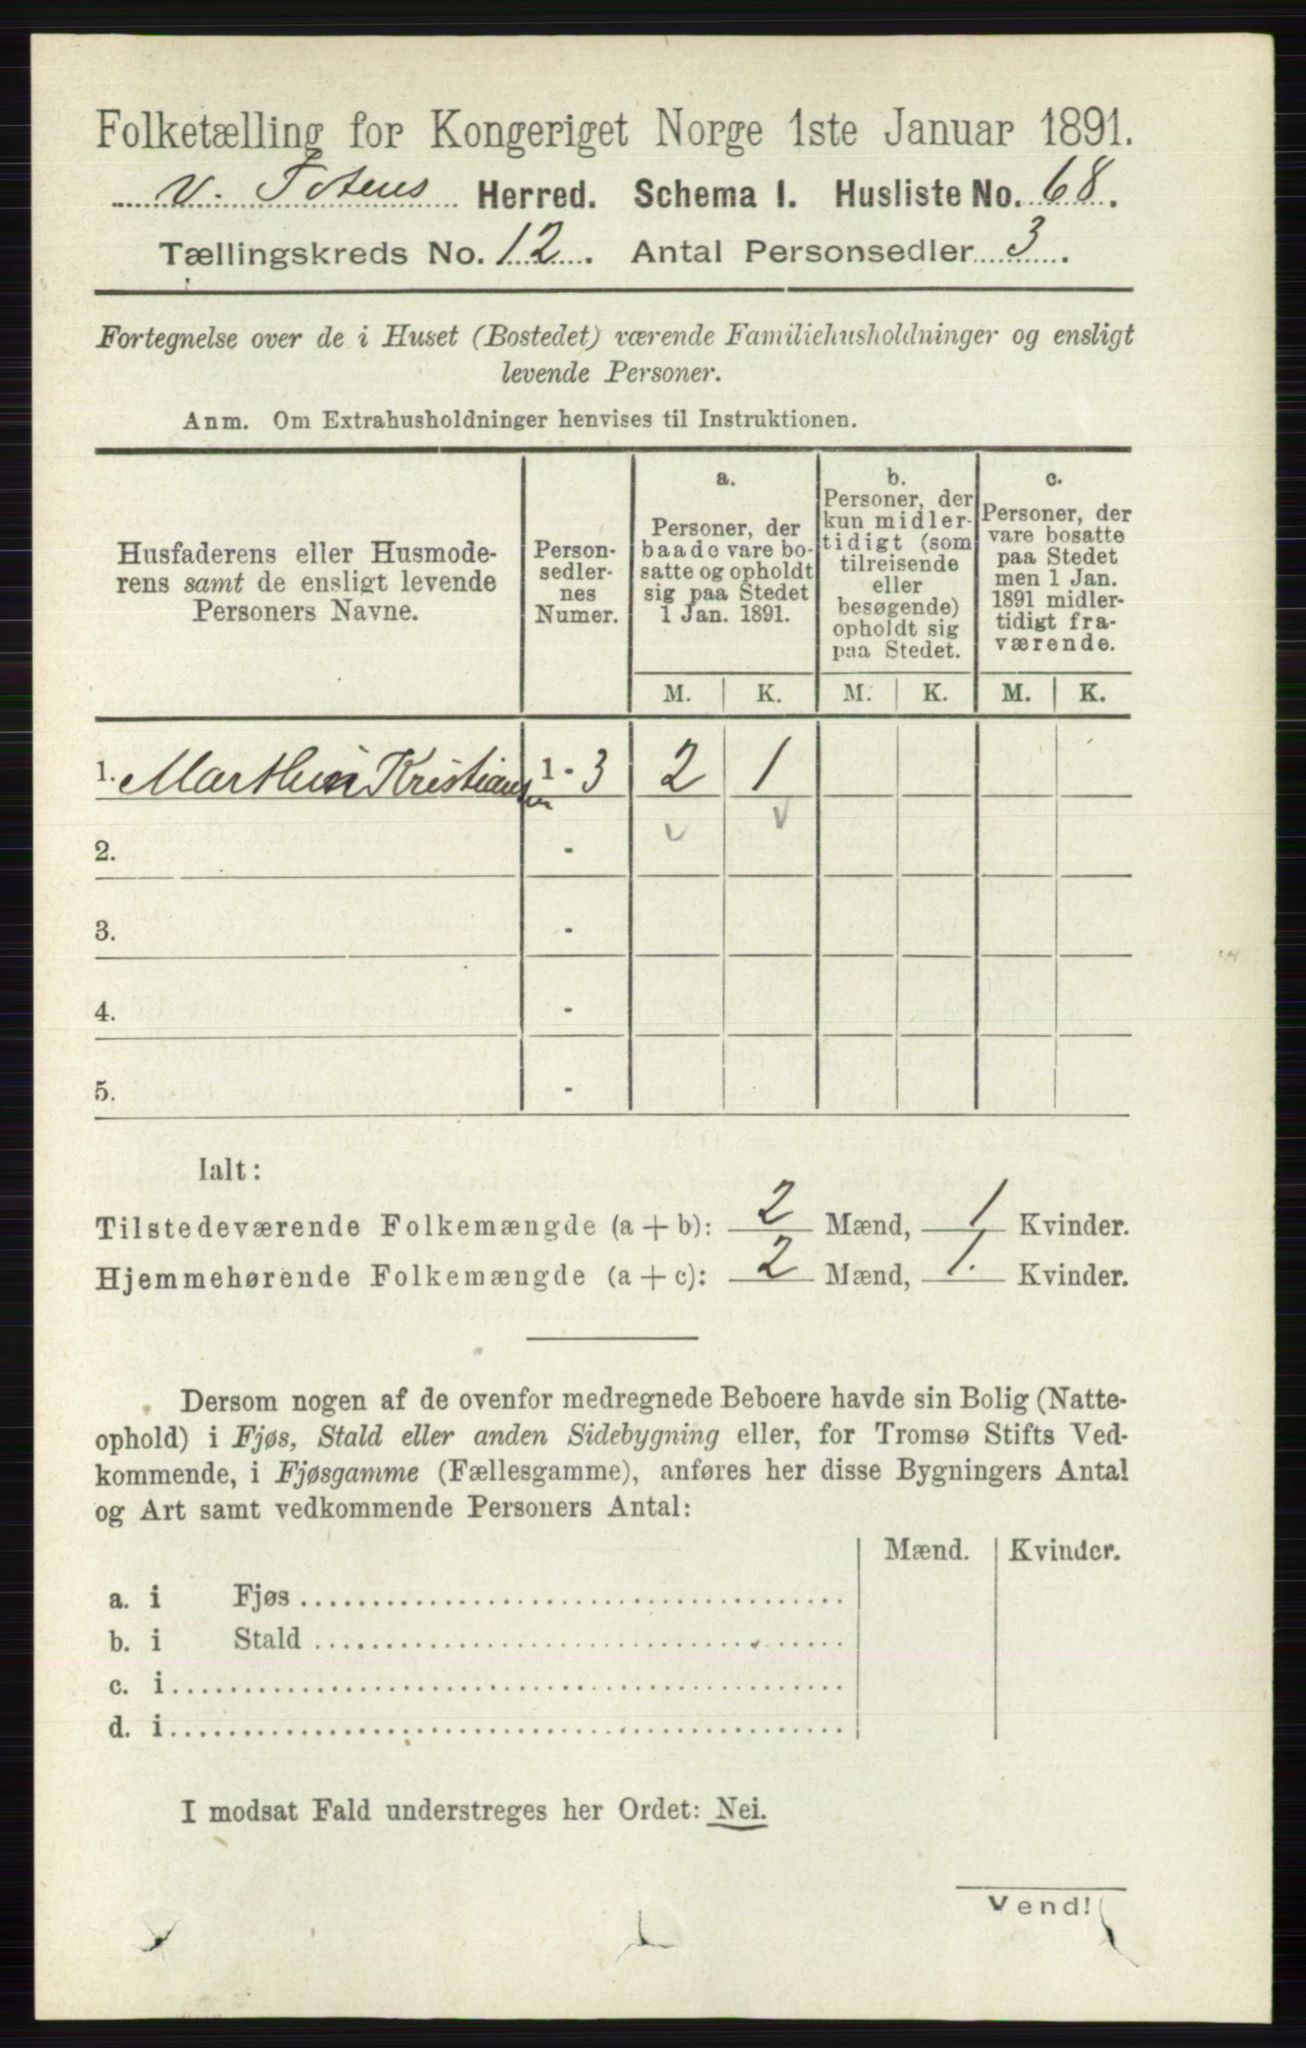 Folketælling for Kongeriget Norge 1ste Januar 1891.
V. Totens Herred. Schema I. Husliste No. 68.
Tællingskreds No. 12. Antal Personsedler 3.
Fortegnelse over de i Huset (Bostedet) værende Familiehusholdninger og ensligt
levende Personer.
Anm. Om Extrahusholdninger henvises til Instruktionen.
Husfaderens eller Husmode-
rens samt de ensligt levende
Personers Navne.
Person-
sedler-
nes
Numer.
a.
Personer, der
baade vare bo-
satte og opholdt
sig paa Stedet
1 Jan. 1891.
b.
Personer, der
kun midler-
tidigt (som
tilreisende
eller
besøgende)
opholdt sig
paa Stedet.
c.
Personer, der
vare bosatte
paa Stedet
men 1 Jan.
1891 midler-
tidigt fra-
værende.
M. K. M. K. M. K.
1. Marthin Kristiansen 1 - 3 2 1
2. -
3. -
4. -
5. -
Ialt:
Tilstedeværende Folkemængde (a + b): 2 Mænd, 1 Kvinder.
Hjemmehørende Folkemængde (a + c): 2 Mænd, 1. Kvinder.
Dersom nogen af de ovenfor medregnede Beboere havde sin Bolig (Natte-
ophold) i Fjøs, Stald eller anden Sidebygning eller, for Tromsø Stifts Ved-
kommende, i Fjøsgamme (Fællesgamme), anføres her disse Bygningers Antal
og Art samt vedkommende Personers Antal:
Mænd. Kvinder.
a. i Fjøs
b. i Stald
c. i
d. i
I modsat Fald understreges her Ordet: Nei.
Vend!